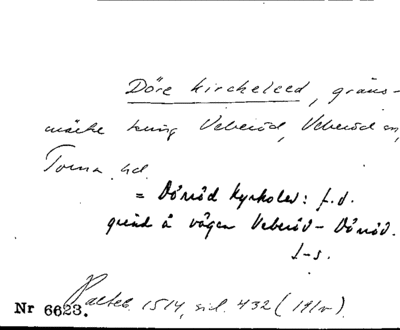 Döre kirckeleed, gräns-
märke kring Veberöd, Veberöd sn,
Torna hd.
= Dörröd Kyrkolev: f.d.
grind å vägen Veberöd - Dörröd.
f-s.
1514, sid. 432 (191v).
Nr 6623.